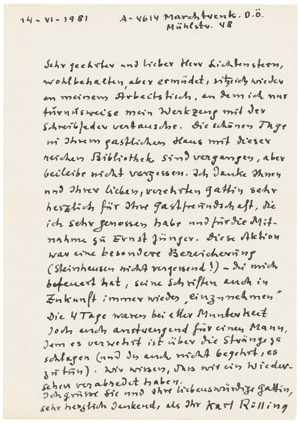 14-VI-1981 A-4614 Marchtrenk. O.Ö.
Mühlstr. 48
Sehr geehrter und lieber Herr Lichtenstern,
wohlbehalten aber ermüdet, sitz ich wieder
an meinem Arbeitstisch, an dem ich nur
turnusweise mein Werkzeug mit der
Schreibfeder vertausche. Die schönen Tage
in Ihrem gastlichen Haus mit dieser
reichen Bibliothek sind vergangen, aber
beileibe nicht vergessen. Ich danke Ihnen
und Ihrer lieben, verehrten Gattin sehr
herzlich für Ihre Gastfreundschaft, die
ich sehr genossen habe und für die Mit-
nahme zu Ernst Jünger. Diese Aktion
war eine besondere Bereicherung
(Steinhausen nicht vergessend!) - die mich
befeuert hat, seine Schriften auch in
Zukunft immer wieder „einzunehmen"
Die 4 Tage waren bei aller Munterkeit
doch auch anstrengend für einen Mann,
dem es verwehrt ist über die Stränge zu
schlagen (und der auch nicht begehrt, es
zu tun). Wir wissen, dass wir ein Wieder-
sehen verabredet haben.
Ich grüsse Sie und Ihre liebenswürdige Gattin,
sehr herzlich dankend, als Ihr Karl Rössing